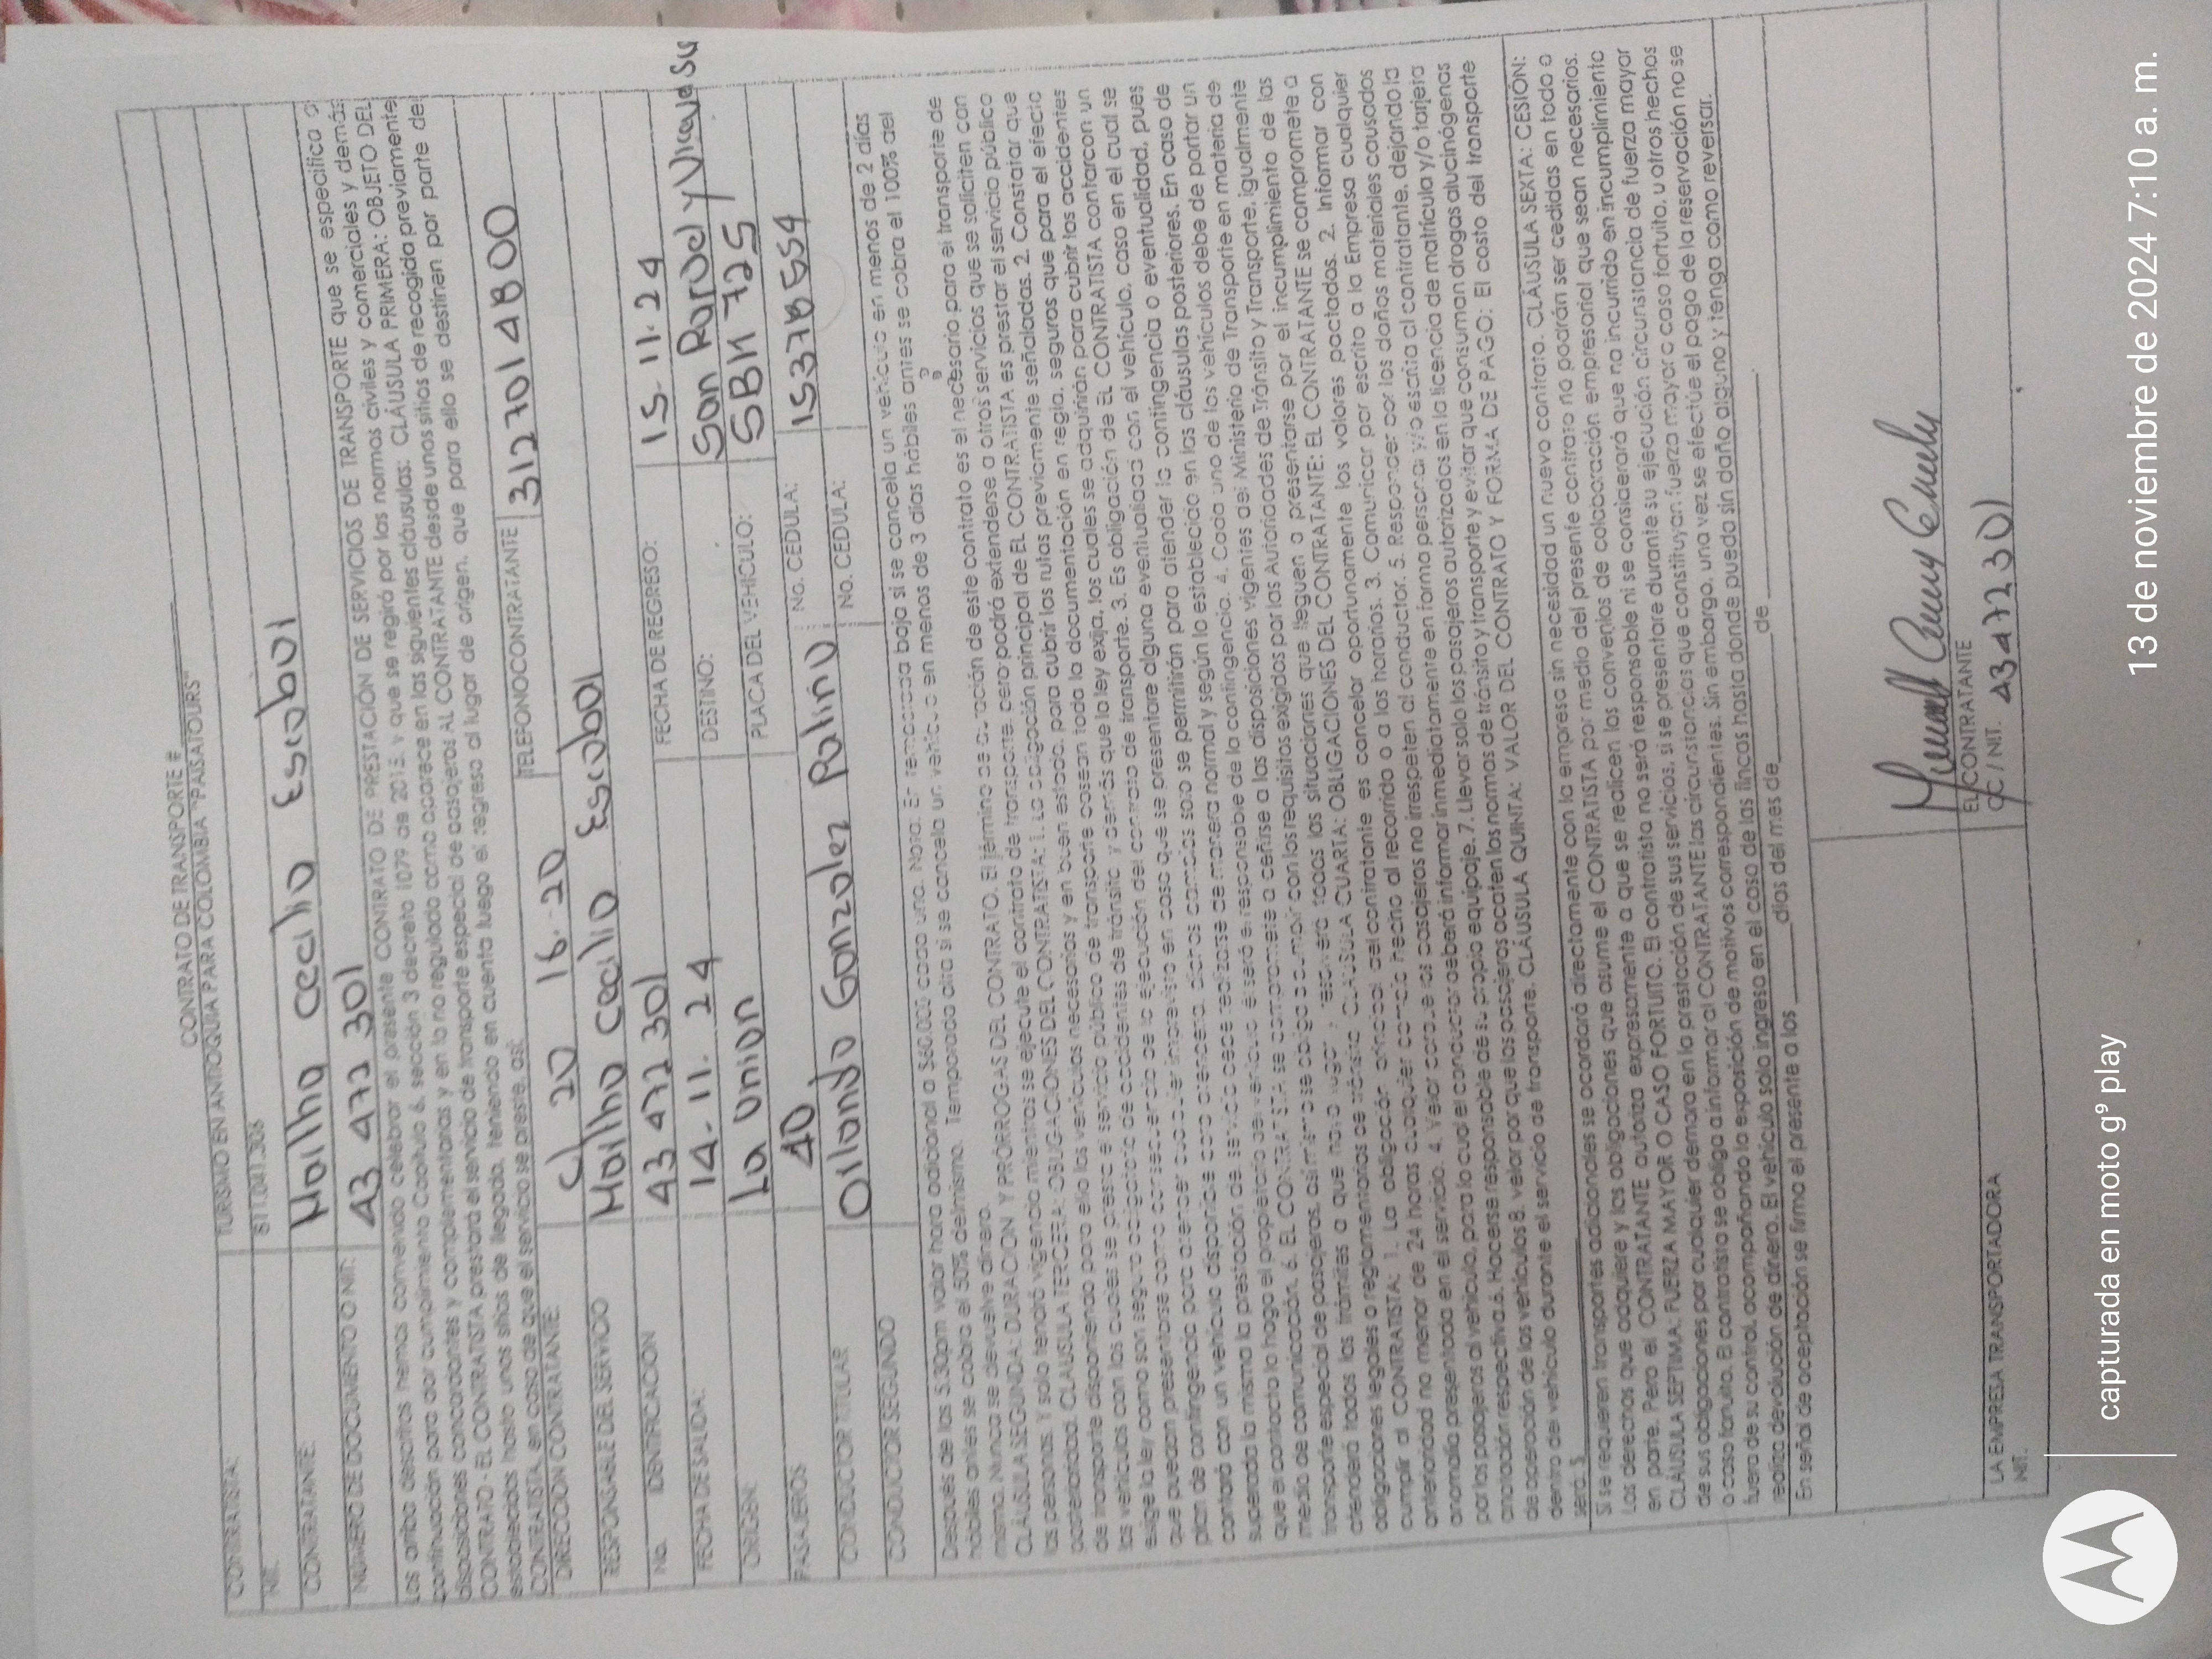 CONTRATO DE TRANSPORTE #
CONTRATISTA: TURISMO EN ANTIOQUIA PARA COLOMBIA "PAISATOURS"
NIT. 811.041.306
CONTRATANTE:
NUMERO DE DOCUMENTO O NIT: 43 472 301
Los arriba descritos hemos convenido celebrar el presente CONTRATO DE PRESTACIÓN DE SERVICIOS DE TRANSPORTE que se especifica a
continuación para dar cumplimiento Capitulo 6, sección 3 decreto 1079 de 2015, y que se regirá por las normas civiles y comerciales y demás
disposiciones concordantes y complementarias y en lo no regulado como aparece en las siguientes cláusulas: CLÁUSULA PRIMERA: OBJETO DEL
CONTRATO - EL CONTRATISTA prestará el servicio de transporte especial de pasajeros AL CONTRATANTE desde unos sitios de recogida previamente
establecidos hasta unos sitios de llegada, teniendo en cuenta luego el regreso al lugar de origen, que para ello se destinen por parte del
CONTRATISTA, en caso de que el servicio se preste, así:
DIRECCION CONTRATANTE: 20 16-20 TELEFONO CONTRATANTE
RESPONSABLE DEL SERVICIO
No. IDENTIFICACION 43 472 301 FECHA DE REGRESO: 15-11-24
FECHA DE SALIDA: 14.11.24 DESTINO: San
ORIGEN: La Union PLACA DEL VEHICULO: 725
PASAJEROS 40
CONDUCTOR TITULAR Gonzalez No. CEDULA:
CONDUCTOR SEGUNDO No. CEDULA:
Después de las 5:30pm valor hora adicional a $60.000 cada una. Nota: En temporada baja si se cancela un vehículo en menos de 2 días
hábiles antes se cobra el 50% del mismo. Temporada alta si se cancela un vehículo en menos de 3 días hábiles antes se cobra el 100% del
mismo. Nunca se devuelve dinero.
CLÁUSULA SEGUNDA: DURACION Y PRÓRROGAS DEL CONTRATO. El término de duración de este contrato es el necesario para el transporte de
las personas. Y solo tendrá vigencia mientras se ejecute el contrato de transporte, pero podrá extenderse a otros servicios que se soliciten con
posterioridad. CLAUSULA TERCERA: OBLIGACIONES DEL CONTRATISTA: 1. La obligación principal de EL CONTRATISTA es prestar el servicio público
de transporte disponiendo para ello los vehículos necesarios y en buen estado, para cubrir las rutas previamente señaladas. 2. Constatar que
los vehículos con los cuales se presta el servicio público de transporte posean toda la documentación en regla, seguros que para el efecto
exige la ley como son seguro obligatorio de accidentes de tránsito y demás que la ley exija, los cuales se adquirirán para cubrir los accidentes
que puedan presentarse como consecuencia de la ejecución del contrato de transporte. 3. Es obligación de EL CONTRATISTA contar con un
plan de contingencia para atender cualquier imprevisto en caso que se presentare alguna eventualidad con el vehículo, caso en el cual se
contará con un vehículo disponible para atender la contingencia o eventualidad, pues
superada la misma la prestación del servicio debe realizarse de manera normal y según lo establecido en las cláusulas posteriores. En caso de
que el contacto lo haga el propietario del vehículo, él será el responsable de la contingencia. 4. Cada uno de los vehículos debe de portar un
medio de comunicación. 6. EL CONTRATISTA se compromete a ceñirse a las disposiciones vigentes del Ministerio de Transporte en materia de
transporte especial de pasajeros, así mismo se obliga a cumplir con los requisitos exigidos por las Autoridades de Tránsito y Transporte, igualmente
atenderá todos los trámites a que haya lugar y resolverá todas las situaciones que lleguen a presentarse por el incumplimiento de las
obligaciones legales o reglamentarias de tránsito. CLAUSULA CUARTA: OBLIGACIONES DEL CONTRATANTE: EL CONTRATANTE se compromete a
cumplir al CONTRATISTA: 1. La obligación principal del contratante es cancelar oportunamente los valores pactados. 2. Informar con
anterioridad no menor de 24 horas cualquier cambio hecho al recorrido o a los horarios. 3. Comunicar por escrito a la Empresa cualquier
anomalía presentada en el servicio. 4. Velar porque los pasajeros no irrespeten al conductor. 5. Responder por los daños materiales causados
por los pasajeros al vehículo, para lo cual el conductor deberá informar inmediatamente en forma personal y/o escrita al contratante, dejando la
anotación respectiva. 6. Hacerse responsable de su propio equipaje. 7. Llevar solo los pasajeros autorizados en la licencia de matrícula y/o tarjeta
de operación de los vehículos 8. velar por que los pasajeros acaten las normas de tránsito y transporte y evitar que consuman drogas alucinógenas
dentro del vehículo durante el servicio de transporte. CLÁUSULA QUINTA: VALOR DEL CONTRATO Y FORMA DE PAGO: El costo del transporte
será: $
Si se requieren transportes adicionales se acordará directamente con la empresa sin necesidad un nuevo contrato. CLÁUSULA SEXTA: CESIÓN:
Los derechos que adquiere y las obligaciones que asume el CONTRATISTA por medio del presente contrato no podrán ser cedidas en todo o
en parte. Pero el CONTRATANTE autoriza expresamente a que se realicen los convenios de colaboración empresarial que sean necesarios.
CLÁUSULA SEPTIMA: FUERZA MAYOR O CASO FORTUITO. El contratista no será responsable ni se considerará que ha incurrido en incumplimiento
de sus obligaciones por cualquier demora en la prestación de sus servicios, si se presentare durante su ejecución circunstancia de fuerza mayor
o caso fortuito. El contratista se obliga a informar al CONTRATANTE las circunstancias que constituyan fuerza mayor o caso fortuito, u otros hechos
fuera de su control, acompañando la exposición de motivos correspondientes. Sin embargo, una vez se efectúe el pago de la reservación no se
realiza devolución de dinero. El vehículo solo ingreso en el caso de las fincas hasta donde pueda sin daño alguno y tenga como reversar.
En señal de aceptación se firma el presente a los ______ días del mes de ______ de ______.
LA EMPRESA TRANSPORTADORA
NIT.
EL CONTRATANTE
CC / NIT. 43472301
capturada en moto g⁹ play
13 de noviembre de 2024 7:10 a. m.